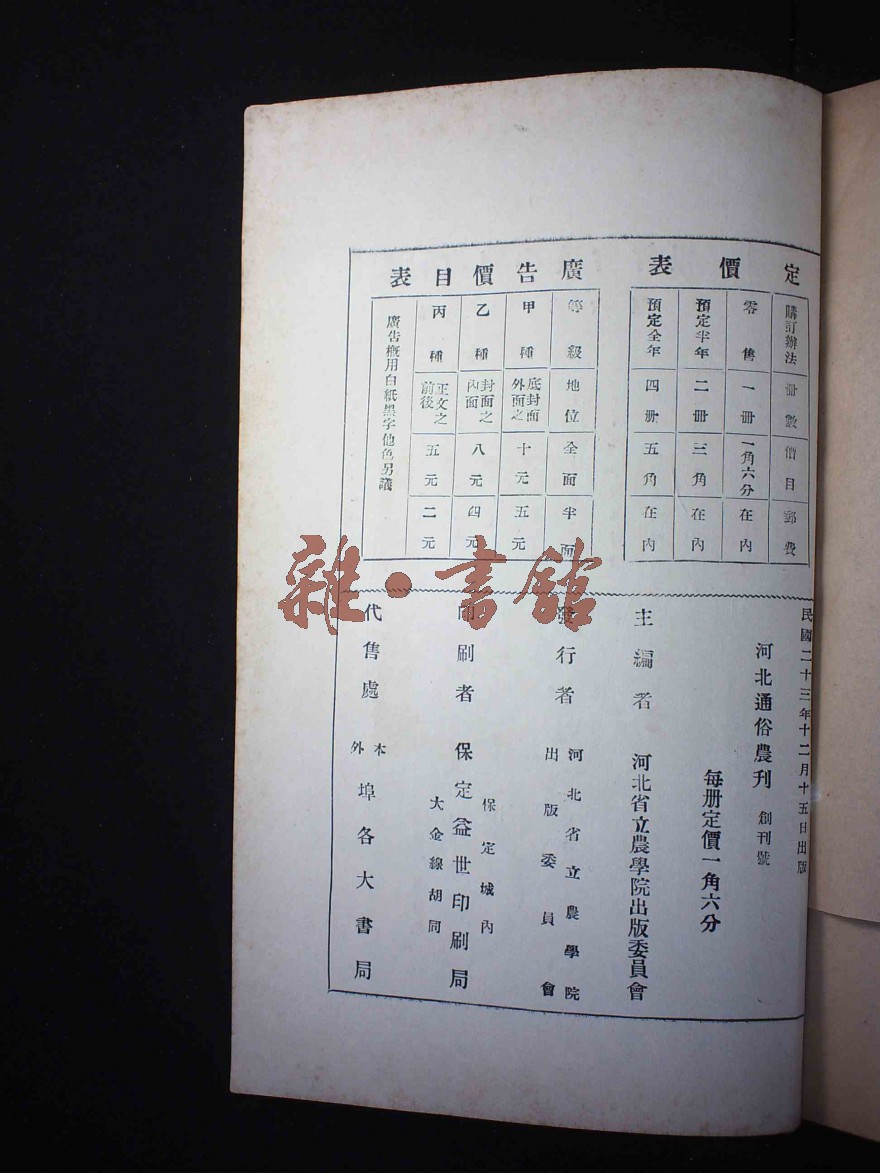 定價表
購訂辦法 冊數 價目 郵費
零售 一冊 一角六分 在內
預定半年 二冊 三角 在內
預定全年 四册 五角 在內
廣告價目表
等級 地位 全面 半面
甲種 底封面外面之 十元 五元
乙種 封面之內面 八元 四元
丙種 正文之前後 五元 二元
廣告概用白紙黑字他色另議
民國二十三年十二月十五日出版
河北通俗農刊 創刊號
每册定價一角六分
主編者 河北省立農學院出版委員會
發行者 河北省立農學院
出版委員會
印刷者 保定益世印刷局
保定城內
大金線胡同
代售處 本外埠各大書局
雜·書館